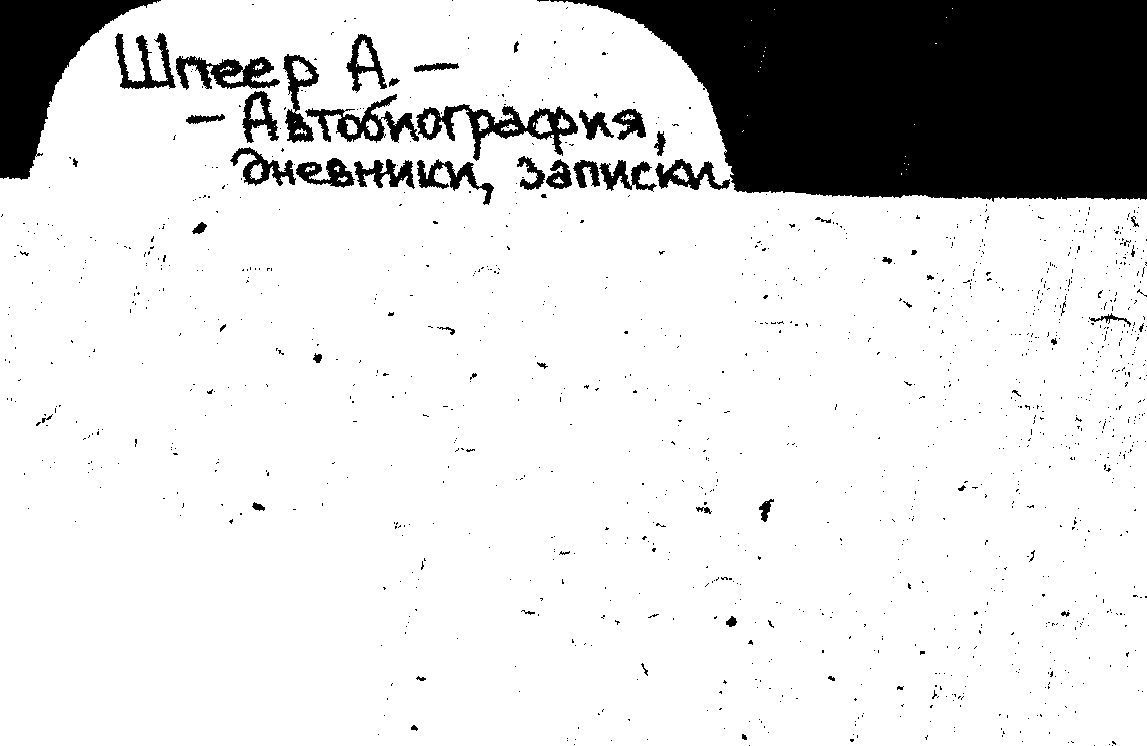 Шпеер А. —
— Автобиография,
дневники, записки